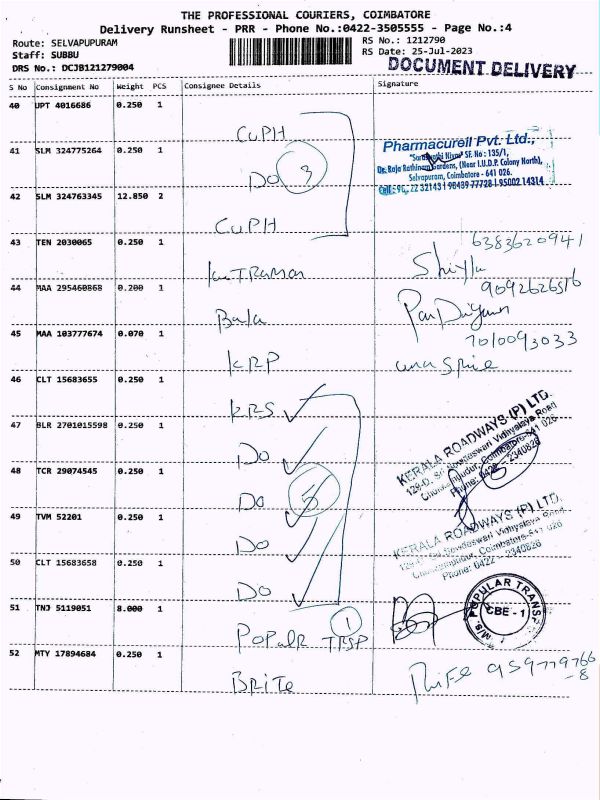 THE PROFESSIONAL COURIERS, COIMBATORE
Delivery Runsheet - PRR - Phone No.:0422-3505555 - Page No.:4
Route: SELVAPUPURAM
RS No.: 1212790
Staff: SUBBU
RS Date: 25-Jul-2023
DRS No.: DCJB121279004
DOCUMENT DELIVERY
S No Consignment No Weight PCS Consignee Details Signature
40 UPT 4016686 0.250 1
CUPH
Pharmacureil Pvt. Ltd.,
41 SLM 324775264 0.250 1
SF. No : 135/1,
Dr. Raja Rathinam Gardens, (Near I.U.D.P. Colony North),
DO 3
Selvapuram, Coimbatore - 641 026.
32143 | 98489 77728 | 95002 14314
42 SLM 324763345 12.850 2
CUPH
43 TEN 2030065 0.250 1
6383620941
44 MAA 295460868 0.200 1
9092626516
Bala
45 MAA 103777674 0.070 1
7010093033
KRP
46 CLT 15683655 0.250 1
KRS
KERALA ROADWAYS (P) LTD.
47 BLR 2701015598 0.250 1
129-D, Sri Sowdeswari Vidhyalaya Road
DO
Coimbatore-641 026
Phone: 0422 - 2340826
48 TCR 29074545 0.250 1
DO 5
49 TVM 52201 0.250 1
KERALA ROADWAYS (P) LTD.
129-D, Sri Sowdeswari Vidhyalaya Road
DO
Coimbatore-641 026
Phone: 0422 - 2340826
50 CLT 15683658 0.250 1
DO
51 TNJ 5119051 8.000 1
1
POPULR TRSP
M/S. POPULAR TRANSP
CBE - 1
52 MTY 17894684 0.250 1
959779766
-8
BRITE